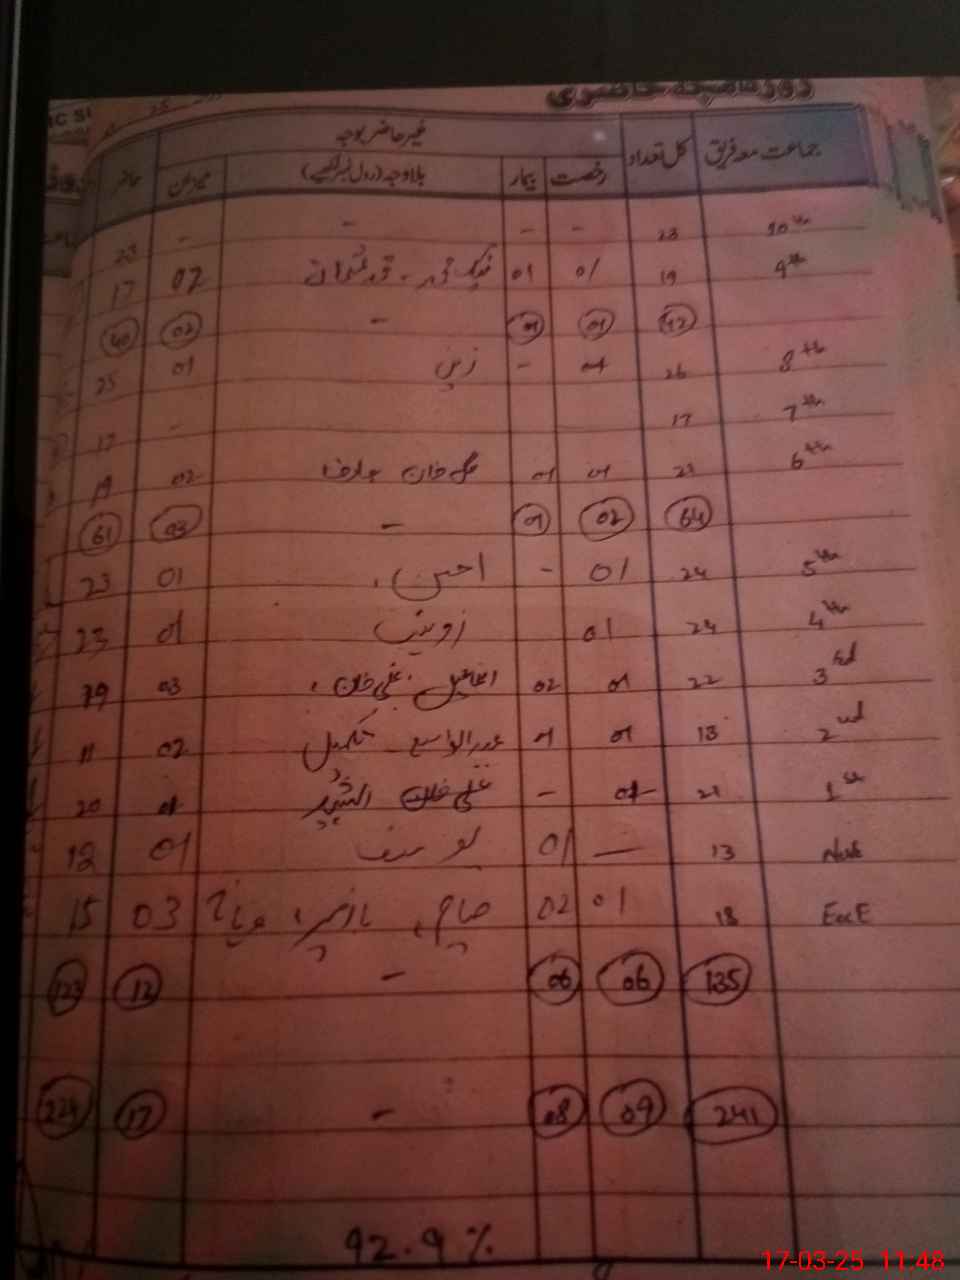 روزنامچہ حاضری
جماعت معہ فریق کل تعداد غیر حاضر بوجہ حاضر
رخصت بیمار بلاوجہ (رول نمبر لکھیے) میزان
10th 23 - - - - 23
9th 19 01 01 02 17
42 01 01 - 02 40
8th 26 01 - زین 01 25
7th 17 - 17
6th 21 01 01 علی خان عارف 02 19
64 02 01 - 03 61
5th 24 01 - احسن 01 23
4th 24 01 زونیب 01 23
3rd 22 01 02 علی خان 03 19
2nd 13 01 01 عبدالواسع 02 11
1st 21 01 - علی خان 01 20
13 — 01 یوسف 01 12
EccE 18 01 02 03 15
135 06 06 - 12 123
241 09 08 - 17 224
92.9 %
17-03-25 11:48